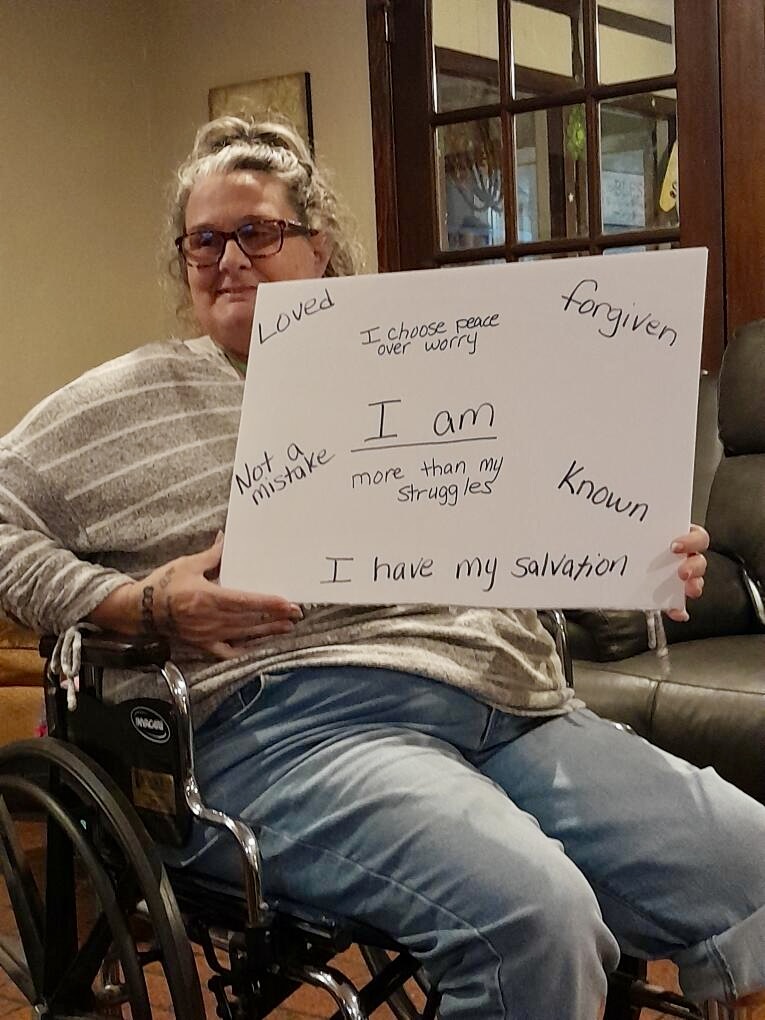 Loved
forgiven
I choose peace
over worry
I am
Not a
mistake
more than my
struggles
Known
I have my salvation
INVACARE